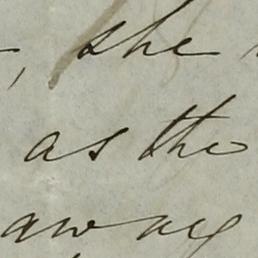 , she
as the
away